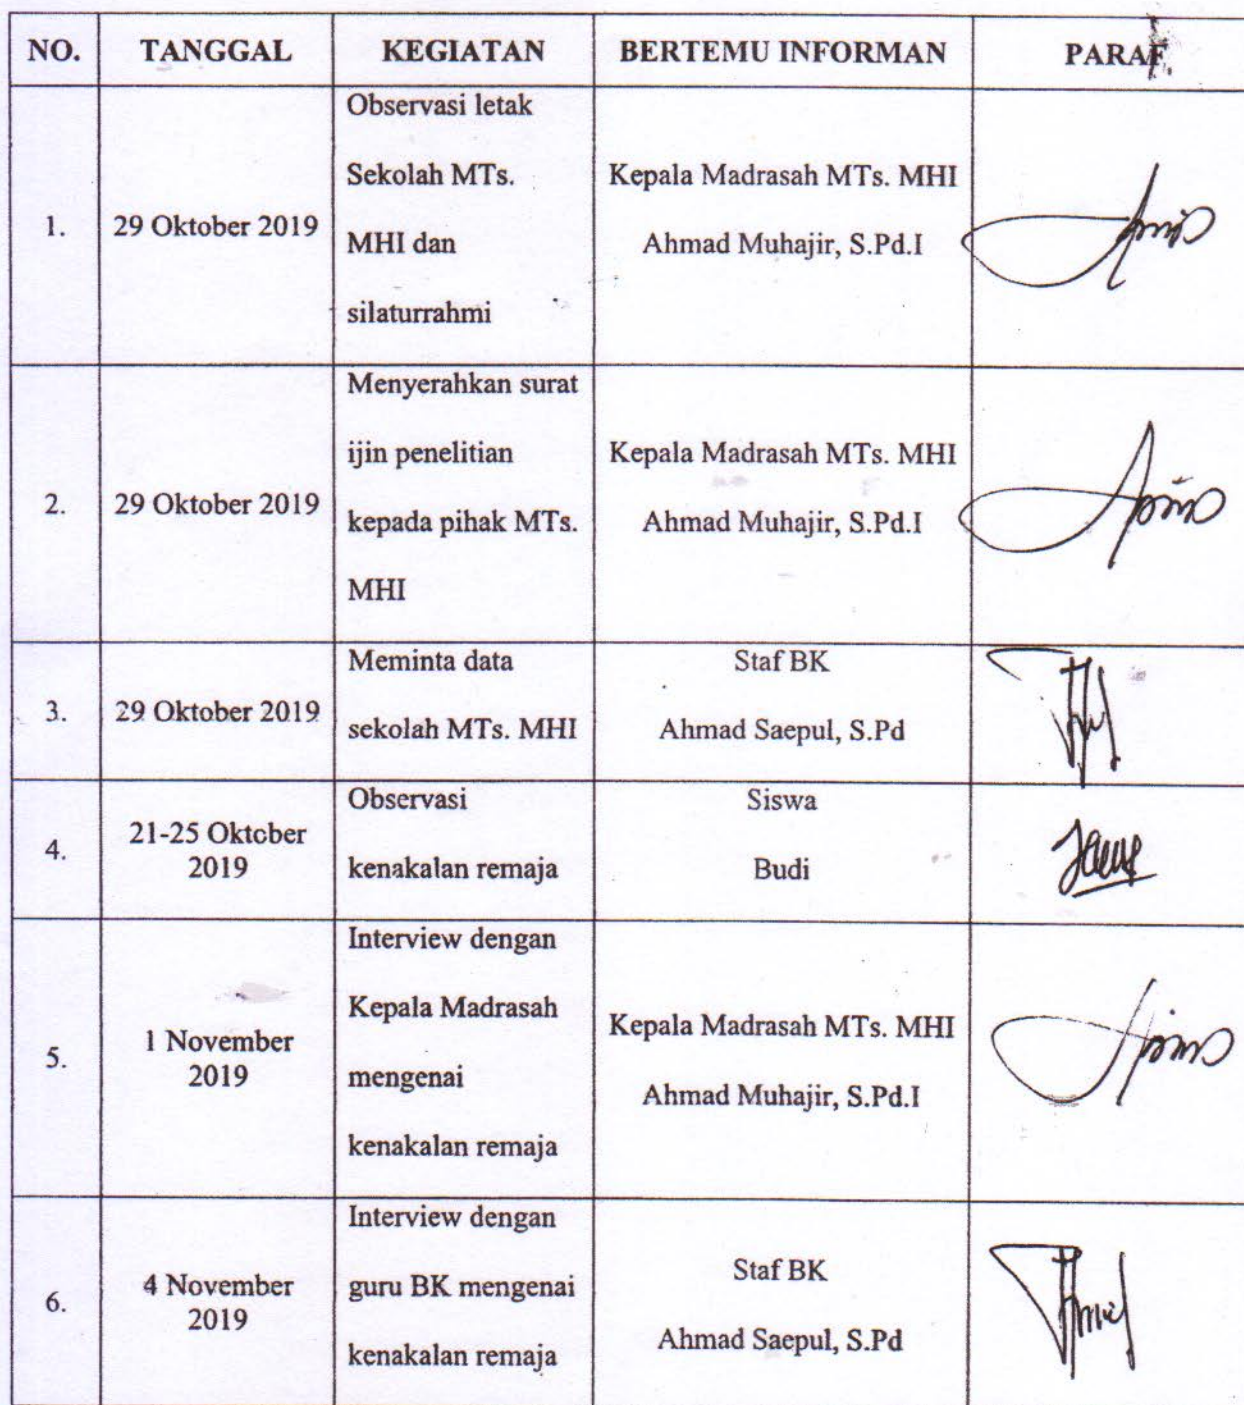 NO. TANGGAL KEGIATAN BERTEMU INFORMAN PARAF
1.
29 Oktober 2019
Observasi letak
Sekolah MTs.
MHI dan
silaturrahmi
Kepala Madrasah MTs. MHI
Ahmad Muhajir, S.Pd.I
2.
29 Oktober 2019
Menyerahkan surat
ijin penelitian
kepada pihak MTs.
MHI
Kepala Madrasah MTs. MHI
Ahmad Muhajir, S.Pd.I
3.
29 Oktober 2019
Meminta data
sekolah MTs. MHI
Staf BK
Ahmad Saepul, S.Pd
4.
21-25 Oktober
2019
Observasi
kenakalan remaja
Siswa
Budi
5.
1 November
2019
Interview dengan
Kepala Madrasah
mengenai
kenakalan remaja
Kepala Madrasah MTs. MHI
Ahmad Muhajir, S.Pd.I
6.
4 November
2019
Interview dengan
guru BK mengenai
kenakalan remaja
Staf BK
Ahmad Saepul, S.Pd